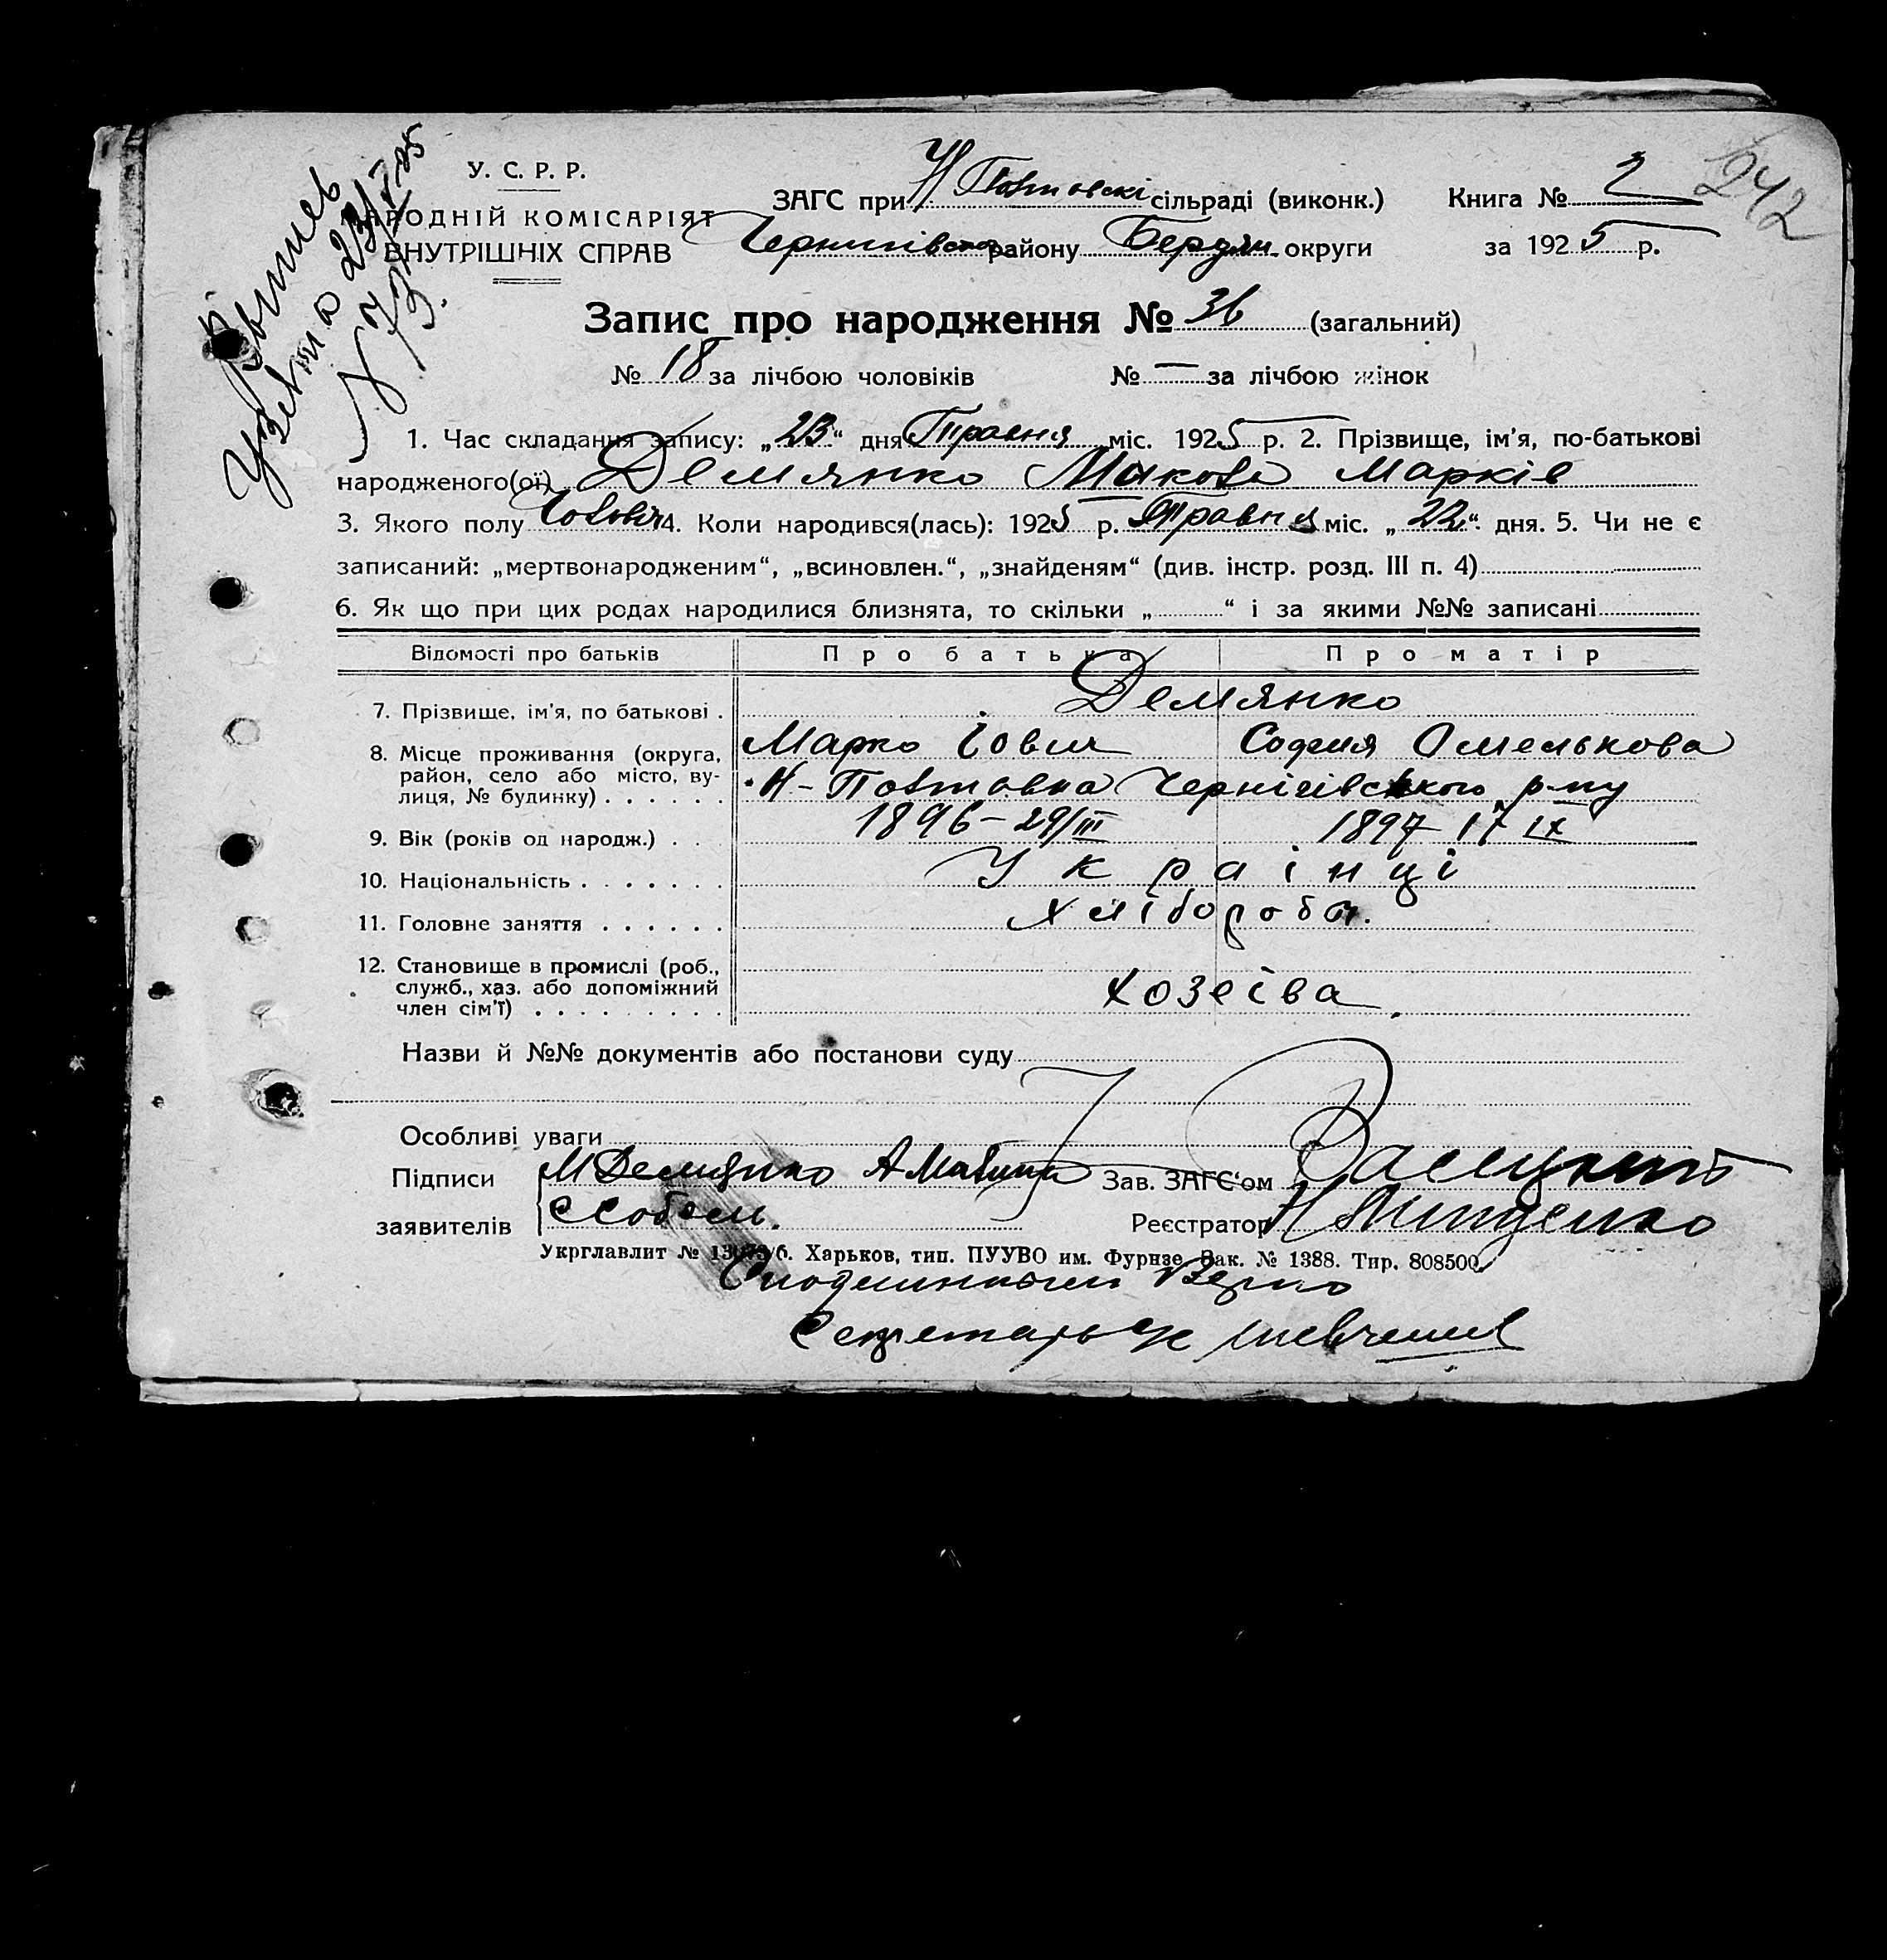 242
У. С. Р. Р.
НАРОДНІЙ КОМІСАРІЯТ
ВНУТРІШНІХ СПРАВ
ЗАГС при Н Полтовскі сільраді (виконк.) Книга № 2
Чернигівськ району Бердян. округи за 1925 р.
Запис про народження № 36 (загальний)
№ 18 за лічбою чоловіків № — за лічбою жінок
1. Час складання запису: „23“ дня Травня міс. 1925 р. 2. Прізвище, ім'я, по-батькові
народженого(ої) Демянко Микола Марків
3. Якого полу Чоловіч 4. Коли народився(лась): 1925 р. Травня міс. „22“ дня. 5. Чи не є
записаний: „мертвонародженим“, „всиновлен.“, „знайденям“ (див. інстр. розд. III п. 4)
6. Як що при цих родах народилися близнята, то скільки „ “ і за якими №№ записані
Відомості про батьків Про батька Про матір
7. Прізвище, ім'я, по батькові . Демянко
Марко Іович София Омелькова
8. Місце проживання (округа, район, село або місто, вулиця, № будинку) . . . . . . Н-Полтовка Чернігівського р-ну
9. Вік (років од народж.) . . . 1896 – 29/III 1897 17 IX
10. Національність . . . . . . . Українці
11. Головне заняття . . . . . . Хлібороби.
12. Становище в промислі (роб.,
служб., хаз. або допоміжний
член сім'ї) . . . . . . . . . хозеіва
Назви й №№ документів або постанови суду
Особливі уваги
Підписи М Демянко Зав. ЗАГС'ом
заявителів Реєстратор
Укрглавлит № б. Харьков, тип. ПУУВО им. Фурнзе. Зак. № 1388. Тир. 808500.
Верно
Секретарь